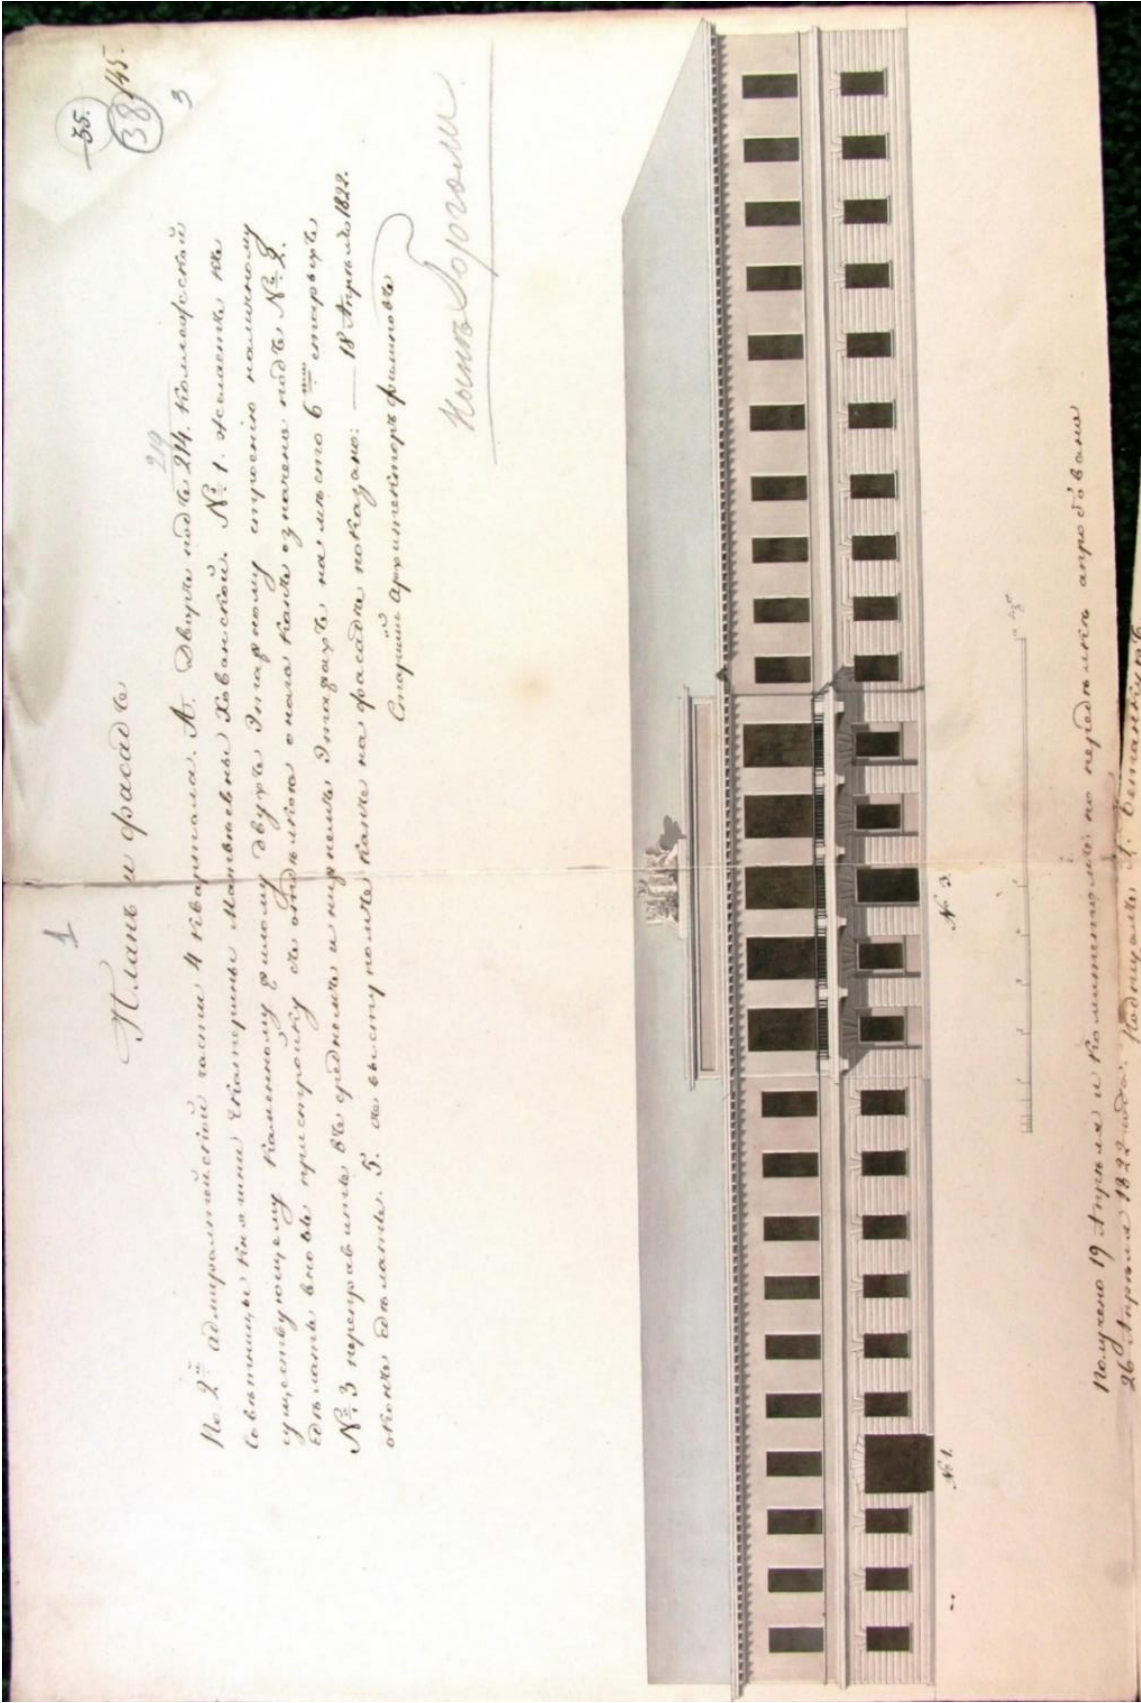 35.
38 / 45.
3
1
Планъ и фасадъ
219
По 2й адмиралтейской части 4 квартала. А. Дворъ подъ 214. Коллежской
совѣтницы Княжны Екатерины Матвѣевны Хованской. № 1. желаетъ къ
существующему каменному жилому двухъ этажному строенію каличному
сдѣлать вновь пристройку съ отдѣлкою оного какъ означено подъ № 2.
№ 3 переправить въ среднемъ и нижнемъ этажахъ на мѣсто 6ти старыхъ
оконъ сдѣлать 5. съ выступомъ какъ на фасадѣ показано: — 18 Апрѣля 1822.
Старшій Архитекторъ Филиповъ
Нынѣ
№ 3.
№ 1.
Получено 19 Апрѣля и Комитетомъ по передѣлкѣ апробовано
26 Апрѣля 1822 года. Подписалъ А. Бетанкуръ